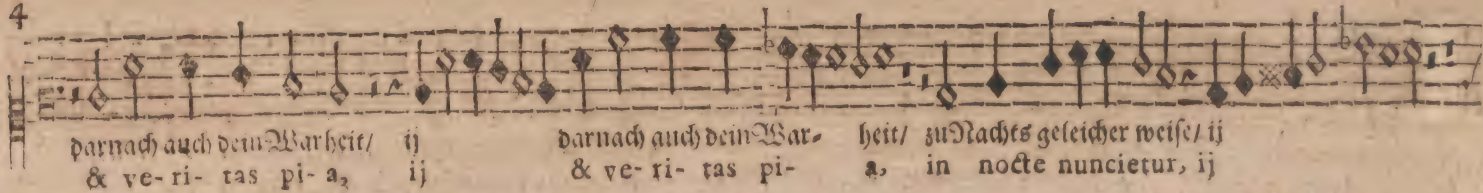 4
darnach auch dein Warheit/ ij darnach auch dein War- heit/ zu Nachts geleicher weise/ ij
& ve- ri- tas pi- a, ij & ve- ri- tas pi- a, in nocte nuncietur, ij